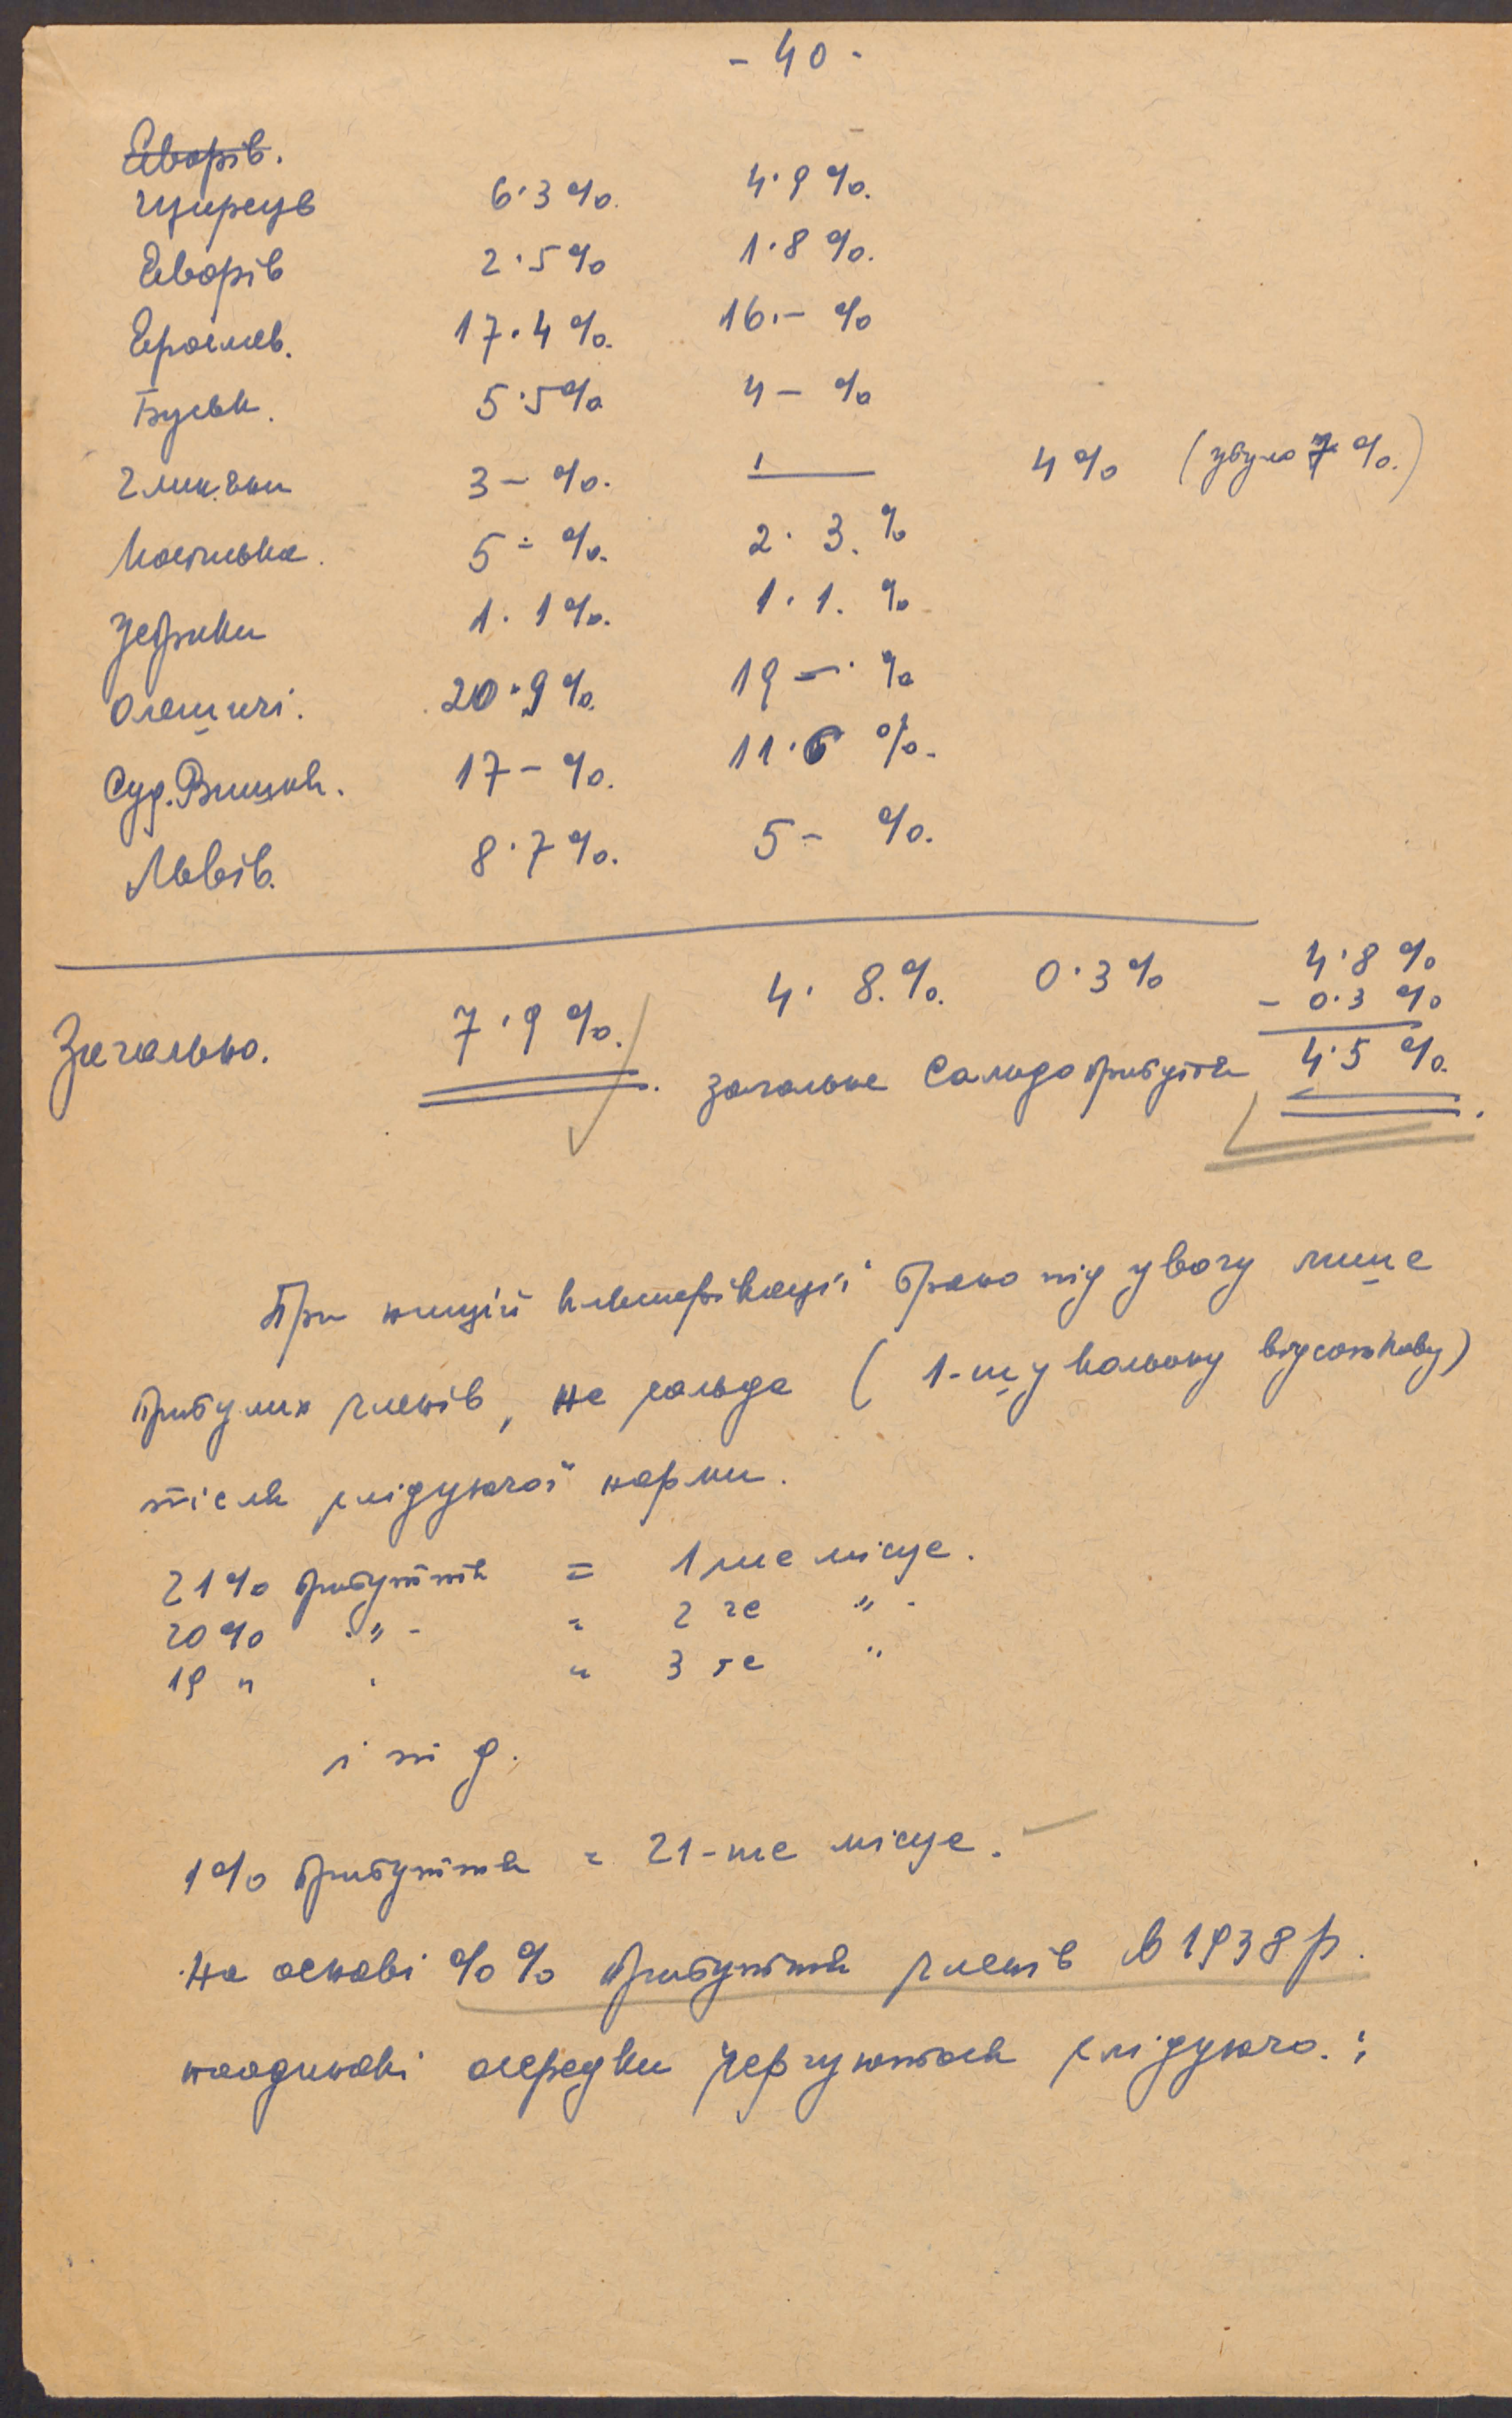 - 40 -
Яворів.
Щирець 6·3% 4·9%.
Яворів 2·5% 1·8%.
Ярослав. 17·4%. 16.- %
Буськ. 5·5% 4 - %
3 - %. 4% (убуло 7%.)
5 - %. 2·3.%
Устрики 1·1%. 1·1.%
Олешичі. 20·9%. 19 - %
Суд. Вишня. 17 - %. 11·6 %.
Львів. 8·7%. 5 - %.
4·8 %
4·8.%. 0·3% - 0·3 %
Загально. 7·9%. загальне сальдо прибуття 4·5 %.
При нищій клясифікації брано під увагу лише
прибулих членів, не сальда ( 1-шу кольону відсоткову)
після слідуючої норми.
21% прибуття = 1 ше місце.
20% -„- = 2 ге „ -
19 „ „ 3 тє „
і т д.
1% прибуття = 21-ше місце.
На основі %% прибуття членів в 1938 р.
поодинокі осередки чергуються слідуючо.: